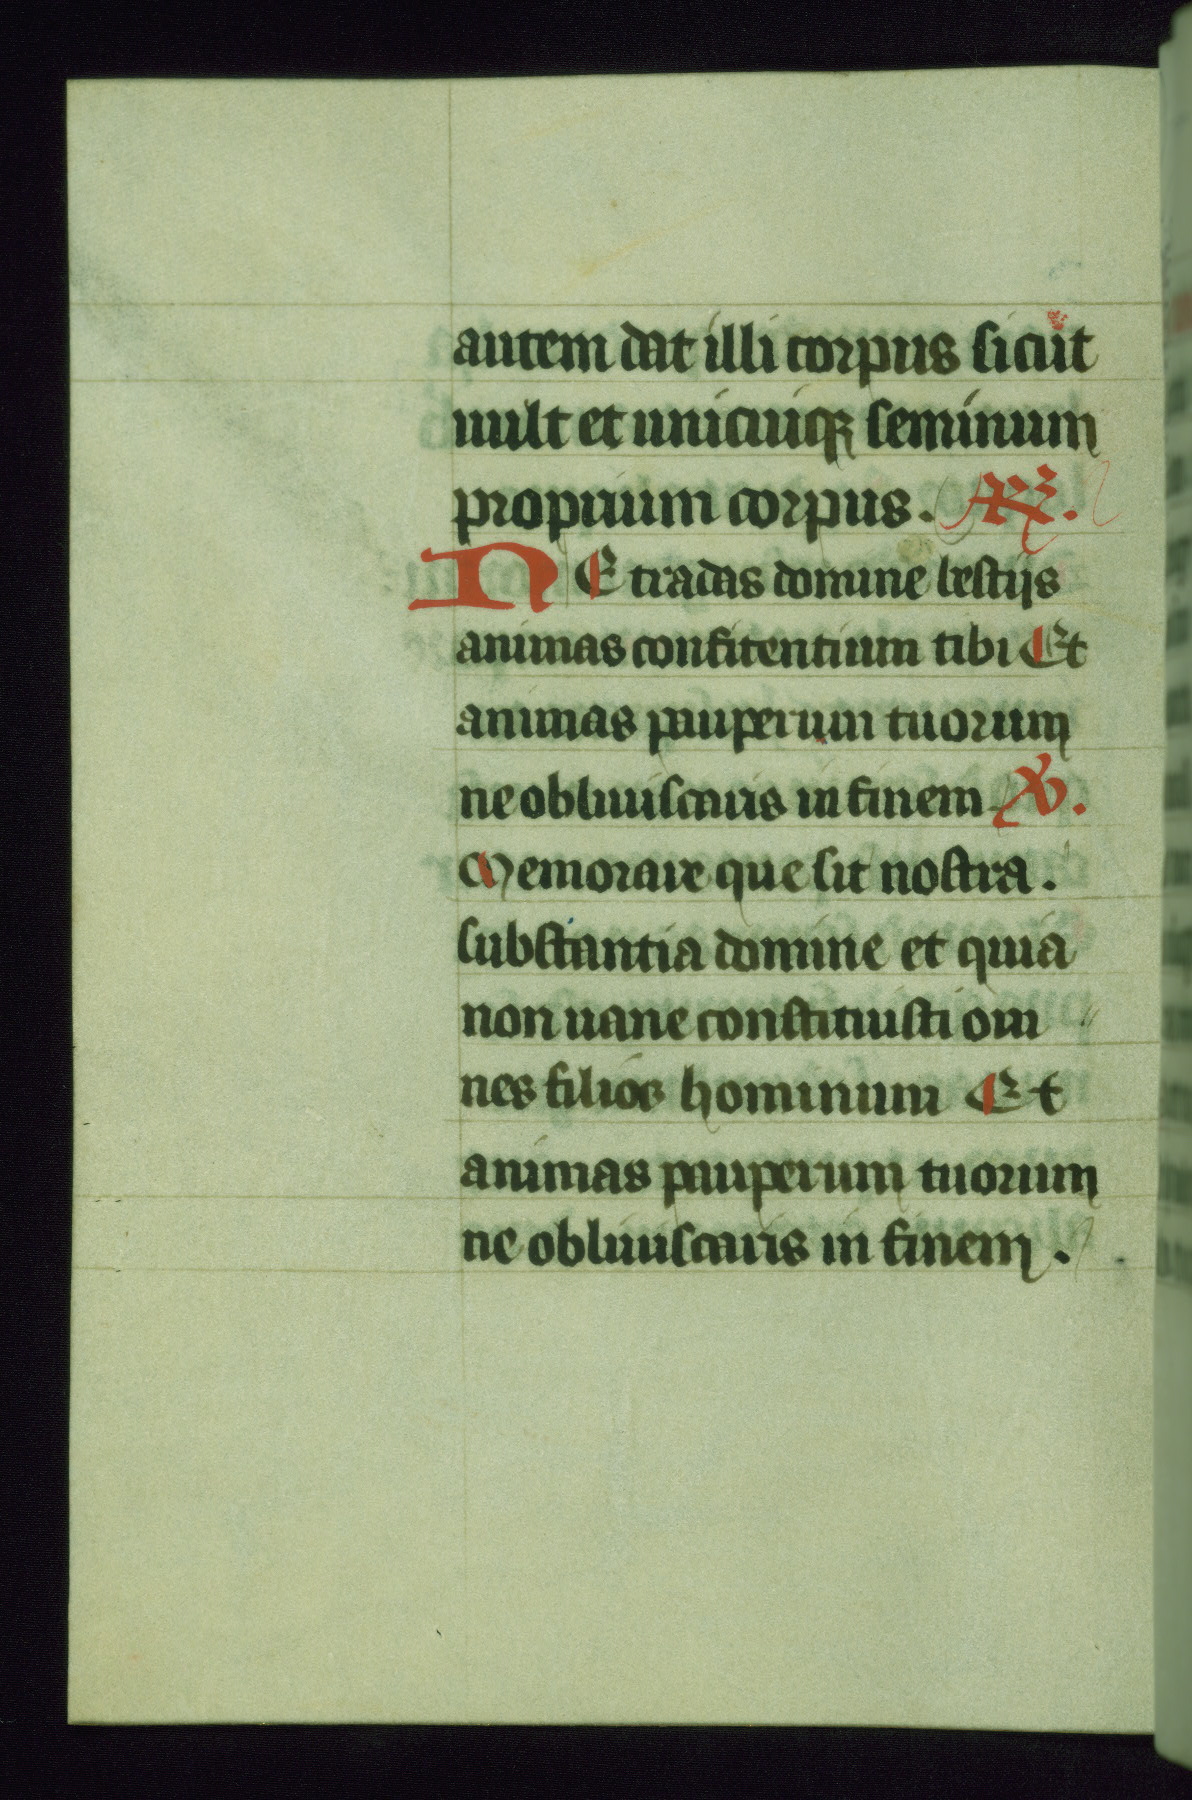 autem dat illi corpus sicut
uult et unicuiqꝫ seminum
proprium corpus. ℟.
NE tradas domine bestijs
animas confitentium tibi Et
animas pauperum tuorum
ne obliuiscaris in finem ℣.
Memorare que sit nostra.
substantia domine et quia
non uane constituisti om
nes filios hominum Et
animas pauperum tuorum
ne obliuiscaris in finem.